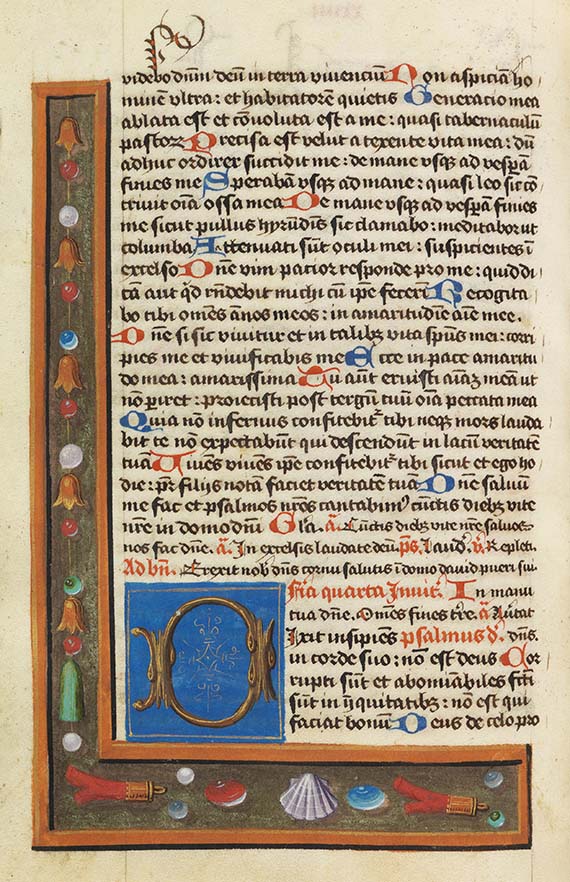 videbo dnm deu in terra viventiu Non aspiciā ho
minem vltra: et habitatorē quietis Generatio mea
ablata est et cōvoluta est a me: quasi tabernaculū
pastorꝫ Precisa est velut a texente vita mea: dū
adhuc ordirer succidit me: de mane vsqꝫ ad vesperā
finies me Sperabā vsqꝫ ad mane: quasi leo sic cō
trivit oīa ossa mea De mane vsqꝫ ad vesperā finies
me sicut pullus hyrūdinis sic clamabo: meditabor ut
columba Attenuati sūt oculi mei: suspicientes ī
excelso Dñe vim patior responde pro me: quid di
cā aut qd rñdebit michi cū ipe fecerī Recogita
bo tibi omēs ānos meos: in amaritudīe aīe mee.
Dñe si sic vivitur et in talibꝫ vita spūs mei: corri
pies me et vivificabis me Ecce in pace amaritu
do mea: amarissima Tu aūt eruisti aīaꝫ meā ut
nō ꝑiret: proiecisti post tergū tuū oīa peccata mea
Quia nō infernus confitebit᷑ tibi neqꝫ mors lauda
bit te nō expectabūt qui descendūt in lacū veritatē
tuā Vivēs vivēs ipe confitebit᷑ tibi sicut et ego ho
die: pr̄ filijs notā faciet veritatē tuā Dñe salvū
me fac et psalmos nr̄os cantabimꝰ cūctis diebꝫ vite
nr̄e in domo dñi Gl̄a. a. Cūctis diebꝫ vite nr̄e salvos
nos fac dñe. a. In excelsis laudate deū. ps. Laud. v. Repleti.
Ad bn̄. Erexit nob dñs cornu salutis ī domo david pueri sui
Fīa quarta Invit. In manu
tua dñe. Omēs fines tr̄e. a. Avertat
Ixit insipiēs psalmus d. dñs.
in corde suo: nō est deus Cor
rupti sūt et abomīabiles fc̄ti
sūt in iniquitatibꝫ: nō est qui
faciat bonū Deus de celo pro